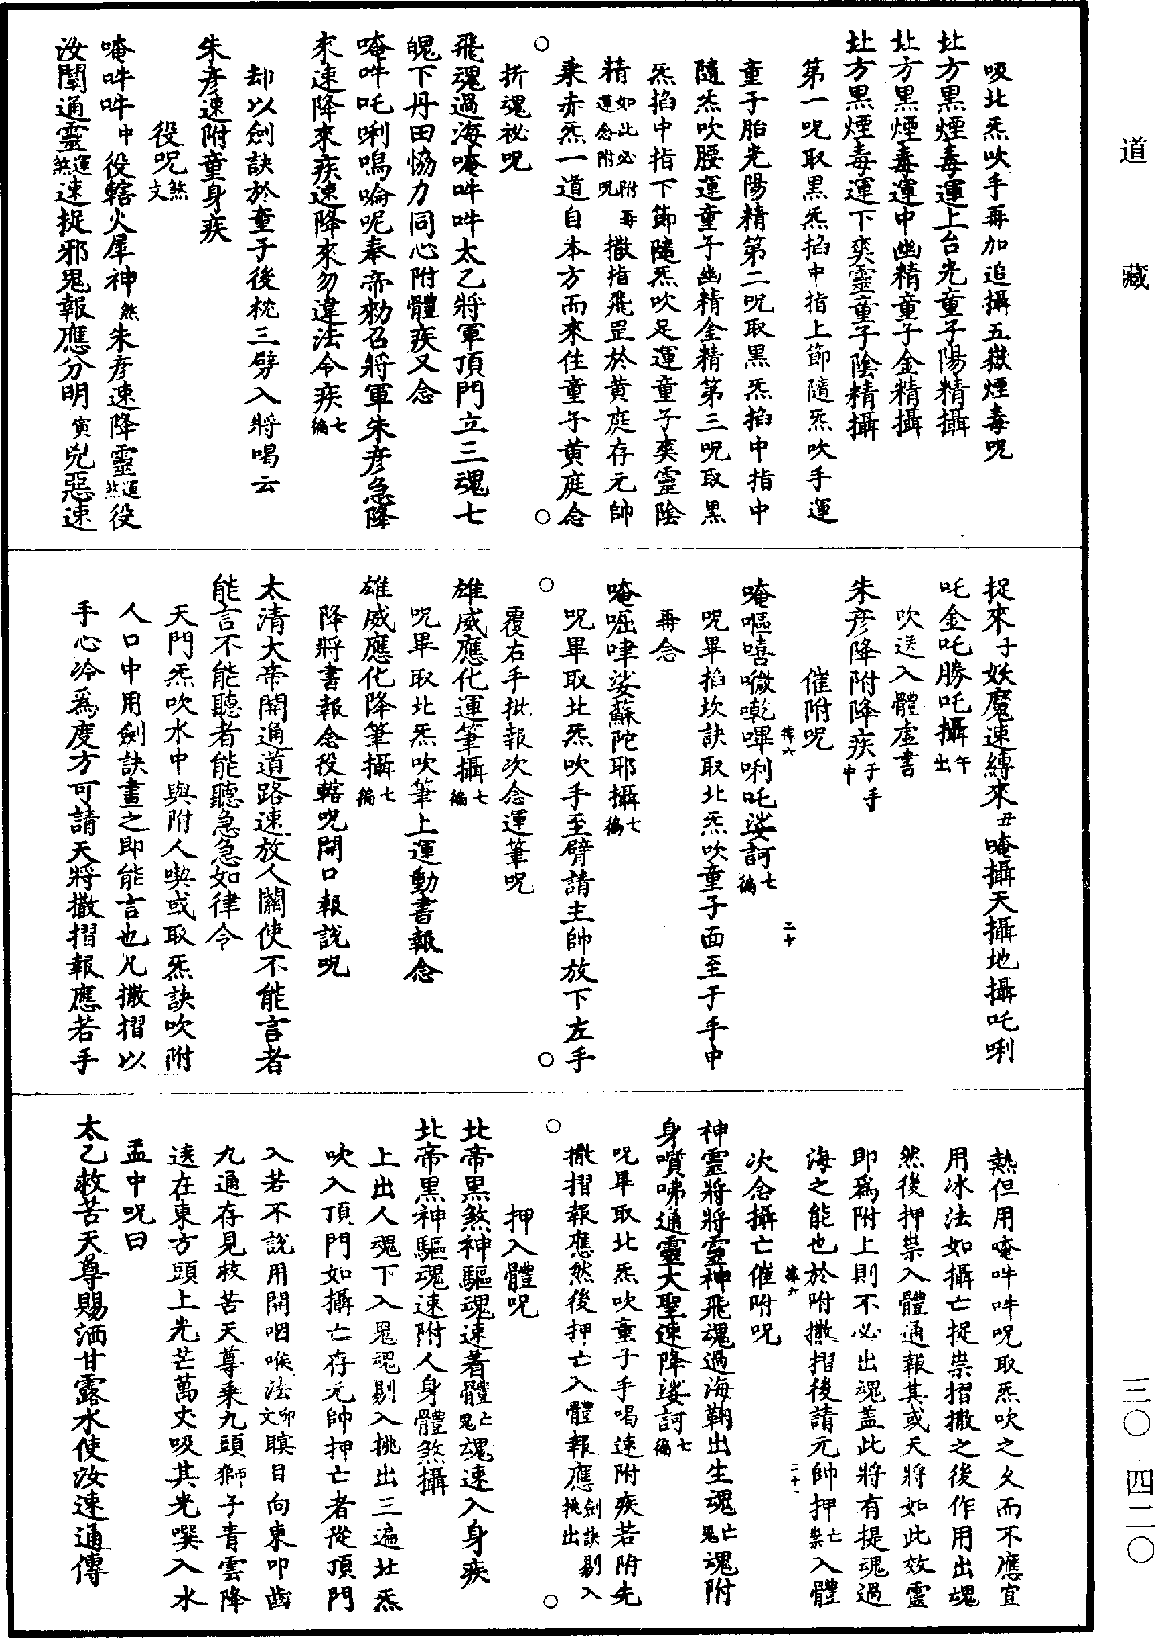 道藏
吸北炁吹手再加追攝五嶽煙毒呪
北方黑煙毒運上台光童子陽精攝
北方黑煙毒運中幽精童子金精攝
北方黑煙毒運下爽靈童子陰精攝
第一呪取黑炁掐中指上節隨炁吹手運
童子胎光陽精第二呪取黑炁掐中指中
隨炁吹腰運童子幽精金精第三呪取黑
炁掐中指下節隨炁吹足運童子爽靈陰
精如此必附再運念附呪撒指飛罡於黄庭存元帥
乘赤炁一道自本方而來住童子黄庭念
折魂祕呪
飛魂過海唵吽吽太乙將軍頂門立三魂七
魄下丹田恊力同心附體疾又念
唵吽吒唎嗚㗮呢奉帝勑召將軍朱彦急降
來速降來疾速降來勿違法令疾七徧
却以劍訣於童子後枕三劈入將喝云
朱彦速附童身疾
役呪煞文
唵吽吽中役轄火犀神煞朱彦速降靈役
汝闓通靈速捉邪鬼報應分明寅兇惡速
捉來子妖魔速縛來丑唵攝天攝地攝吒唎
吒金吒勝吒攝午出
吹送入體虛書
朱彦降附降疾子手中
催附呪
唵嘔嘻㘗㗣嗶唎吒娑訶七徧
呪畢掐坎訣取北炁吹童子面至于手中
再念
唵啒㖀娑蘇陀耶攝七徧
呪畢取北炁吹手至臂請主帥放下左手
覆右手批報次念運筆呪
雄威應化運筆攝七徧
呪畢取北炁吹筆上運動書報念
雄威應化降筆攝七徧
降將書報念役轄呪開口報說呪
太清大帝開通道路速放人關使不能言者
能言不能聽者能聽急急如律令
天門炁吹水中與附人喫或取炁訣吹附
人口中用劍訣畫之即能言也凡撒摺以
手心冷爲度方可請天將撒摺報應若手
熱但用唵吽吽呪取炁吹之久而不應宜
用冰法如攝亡捉祟摺撒之後作用出魂
然後押祟入體通報其或天將如此效靈
即爲附上則不必出魂盖此將有提魂過
海之能也於附撒摺後請元帥押亡祟入體
次念攝亡催附呪
神靈將將靈神飛魂過海鞠出生魂亡鬼魂附
身嚩㖷通靈大聖速降娑訶七徧
呪畢取北炁吹童子手喝速附疾若附先
撒摺報應然後押亡入體報應劍訣剔入挑出
押入體呪
北帝黑煞神驅魂速著體亡鬼魂速入身疾
北帝黑神驅魂速附人身體煞攝
上出人魂下入鬼魂剔入挑出三遍北炁
吹入頂門如攝亡存元帥押亡者從頂門
入若不說用開咽喉法文卯瞑目向東叩齒
九通存見救苦天尊乘九頭獅子青雲降
遠在東方頭上光芒萬丈吸其光噀入水
盂中呪曰
太乙救苦天尊賜洒甘露水使汝速通傳
三〇 四二〇